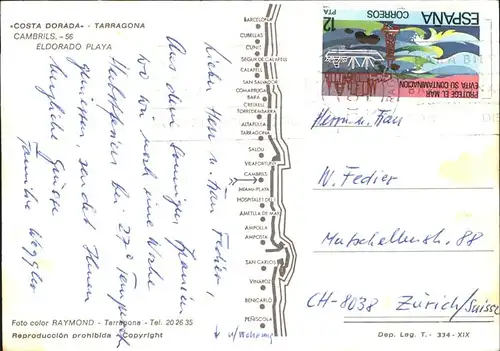 «COSTA DORADA» - TARRAGONA
CAMBRILS. - 56
ELDORADO PLAYA
Lieber Herr u. Frau Fedier,
Aus dem sonnigen Spanien
wo wir noch eine Woche
bei 27° Temperatur
geniessen, sendet Ihnen
herzliche Grüsse
Familie
BARCELONA
CUBELLAS
CUNIT
SEGUR DE CALAFELL
CALAFELL
SAN SALVADOR
COMARRUGA
BARA
CREIXELL
TORREDEMBARRA
ALTAFULLA
TARRAGONA
SALOU
VILAFORTUNY
CAMBRILS
MIAMI-PLAYA
HOSPITALET DEL I.
AMETLLA DE MAR
AMPOLLA
AMPOSTA
SAN CARLOS
VINAROZ
BENICARLO
PEÑISCOLA
12
PTA
ESPAÑA
CORREOS
PROTEGE EL MAR
EVITA SU CONTAMINACION
Herrn u. Frau
W. Fedier
Mutschellenstr. 88
CH-8038 Zürich/Suisse
Foto color RAYMOND - Tarragona - Tel. 20 26 35
Reproducción prohibida - Copyright
Dep. Leg. T. - 334 - XIX